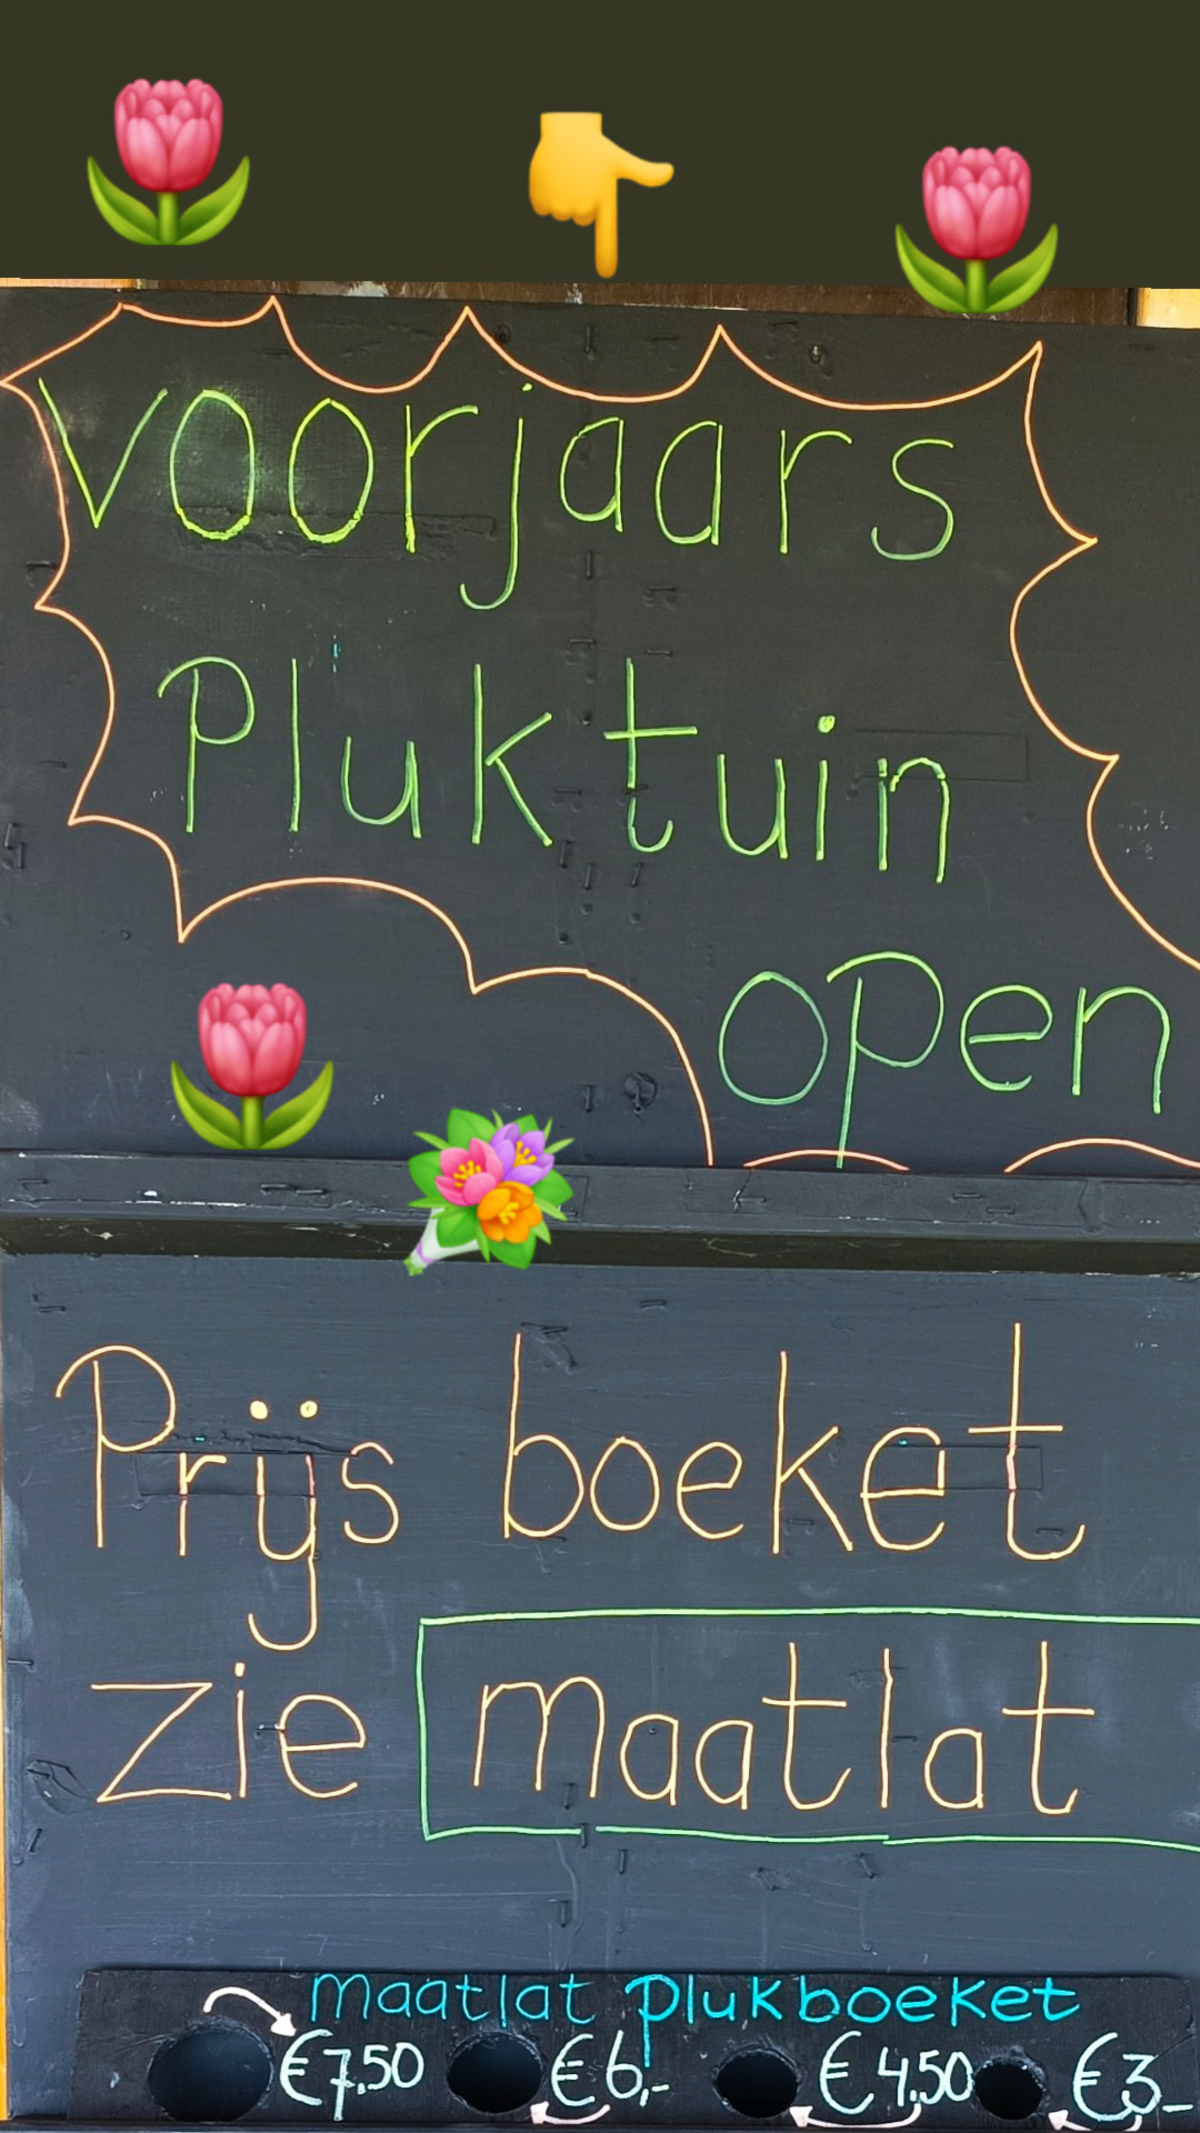 voorjaars
Pluktuin
open
Prijs boeket
zie maatlat
maatlat plukboeket
€7,50 €6,- €4,50 €3,-